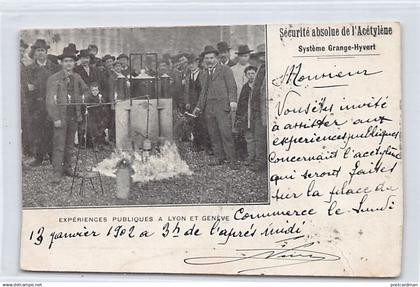 Sécurité absolue de l'Acétylène
Système Grange-Hyvert
Monsieur
Vous êtes invité
à assister aux
experiences publiques
concernant l'acétylène
qui seront faites
sur la place du
EXPÉRIENCES PUBLIQUES A LYON ET GENÈVE
Commerce le Lundi
13 janvier 1902 a 3h de l'après midi